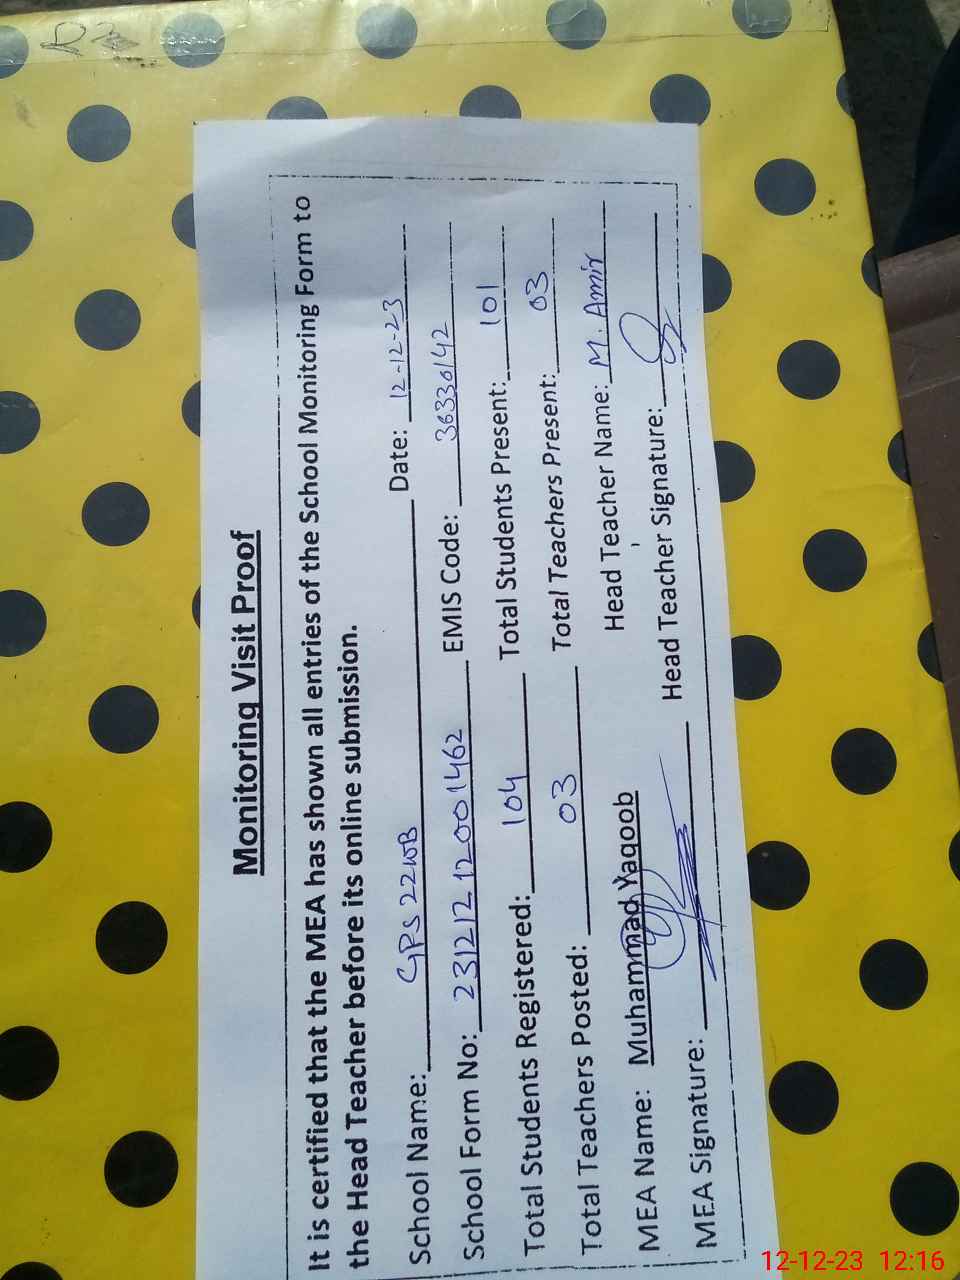 Monitoring Visit Proof
It is certified that the MEA has shown all entries of the School Monitoring Form to
the Head Teacher before its online submission.
School Name: GPS 22WB Date: 12-12-23
School Form No: 23121212001462 EMIS Code: 36330142
Total Students Registered: 104 Total Students Present: 101
Total Teachers Posted: 03 Total Teachers Present: 03
MEA Name: Muhammad Yaqoob Head Teacher Name: M. Amir
MEA Signature: Head Teacher Signature:
12-12-23 12:16